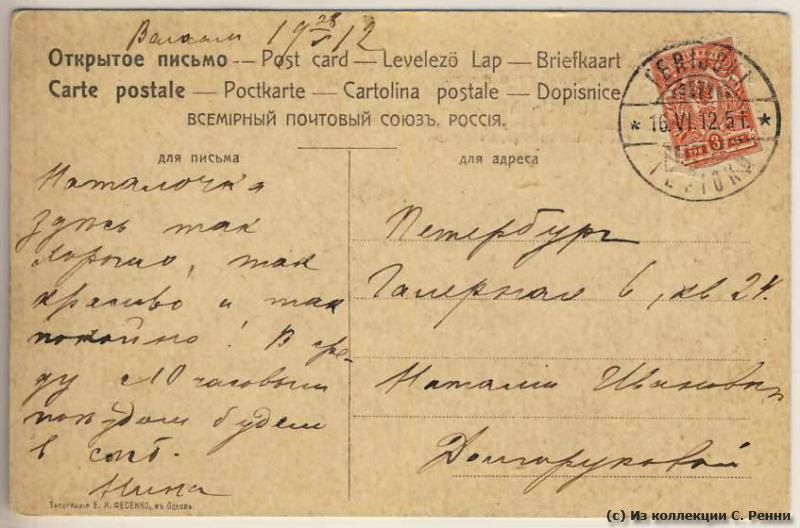 Валаам 19 28/V 12
Открытое письмо — Post card — Levelezö Lap — Briefkaart
Carte postale — Poctkarte — Cartolina postale — Dopisnice
ВСЕМІРНЫЙ ПОЧТОВЫЙ СОЮЗЪ, РОССІЯ.
для письма
Наталочка
здѣсь так
хорошо, так
красиво и так
покойно! В сре-
ду с 10 часовым
поѣздом будем
в спб.
Нина
Типографія Е. И. ФЕСЕНКО, въ Одессѣ.
для адреса
Петербург
Галерная 6, кв 24.
Наталіи Ивановн
Долгоруковой
TERIJOKI
* 16.VI.12.5 I. *
ТЕРІОКИ
3
(c) Из коллекции С. Ренни